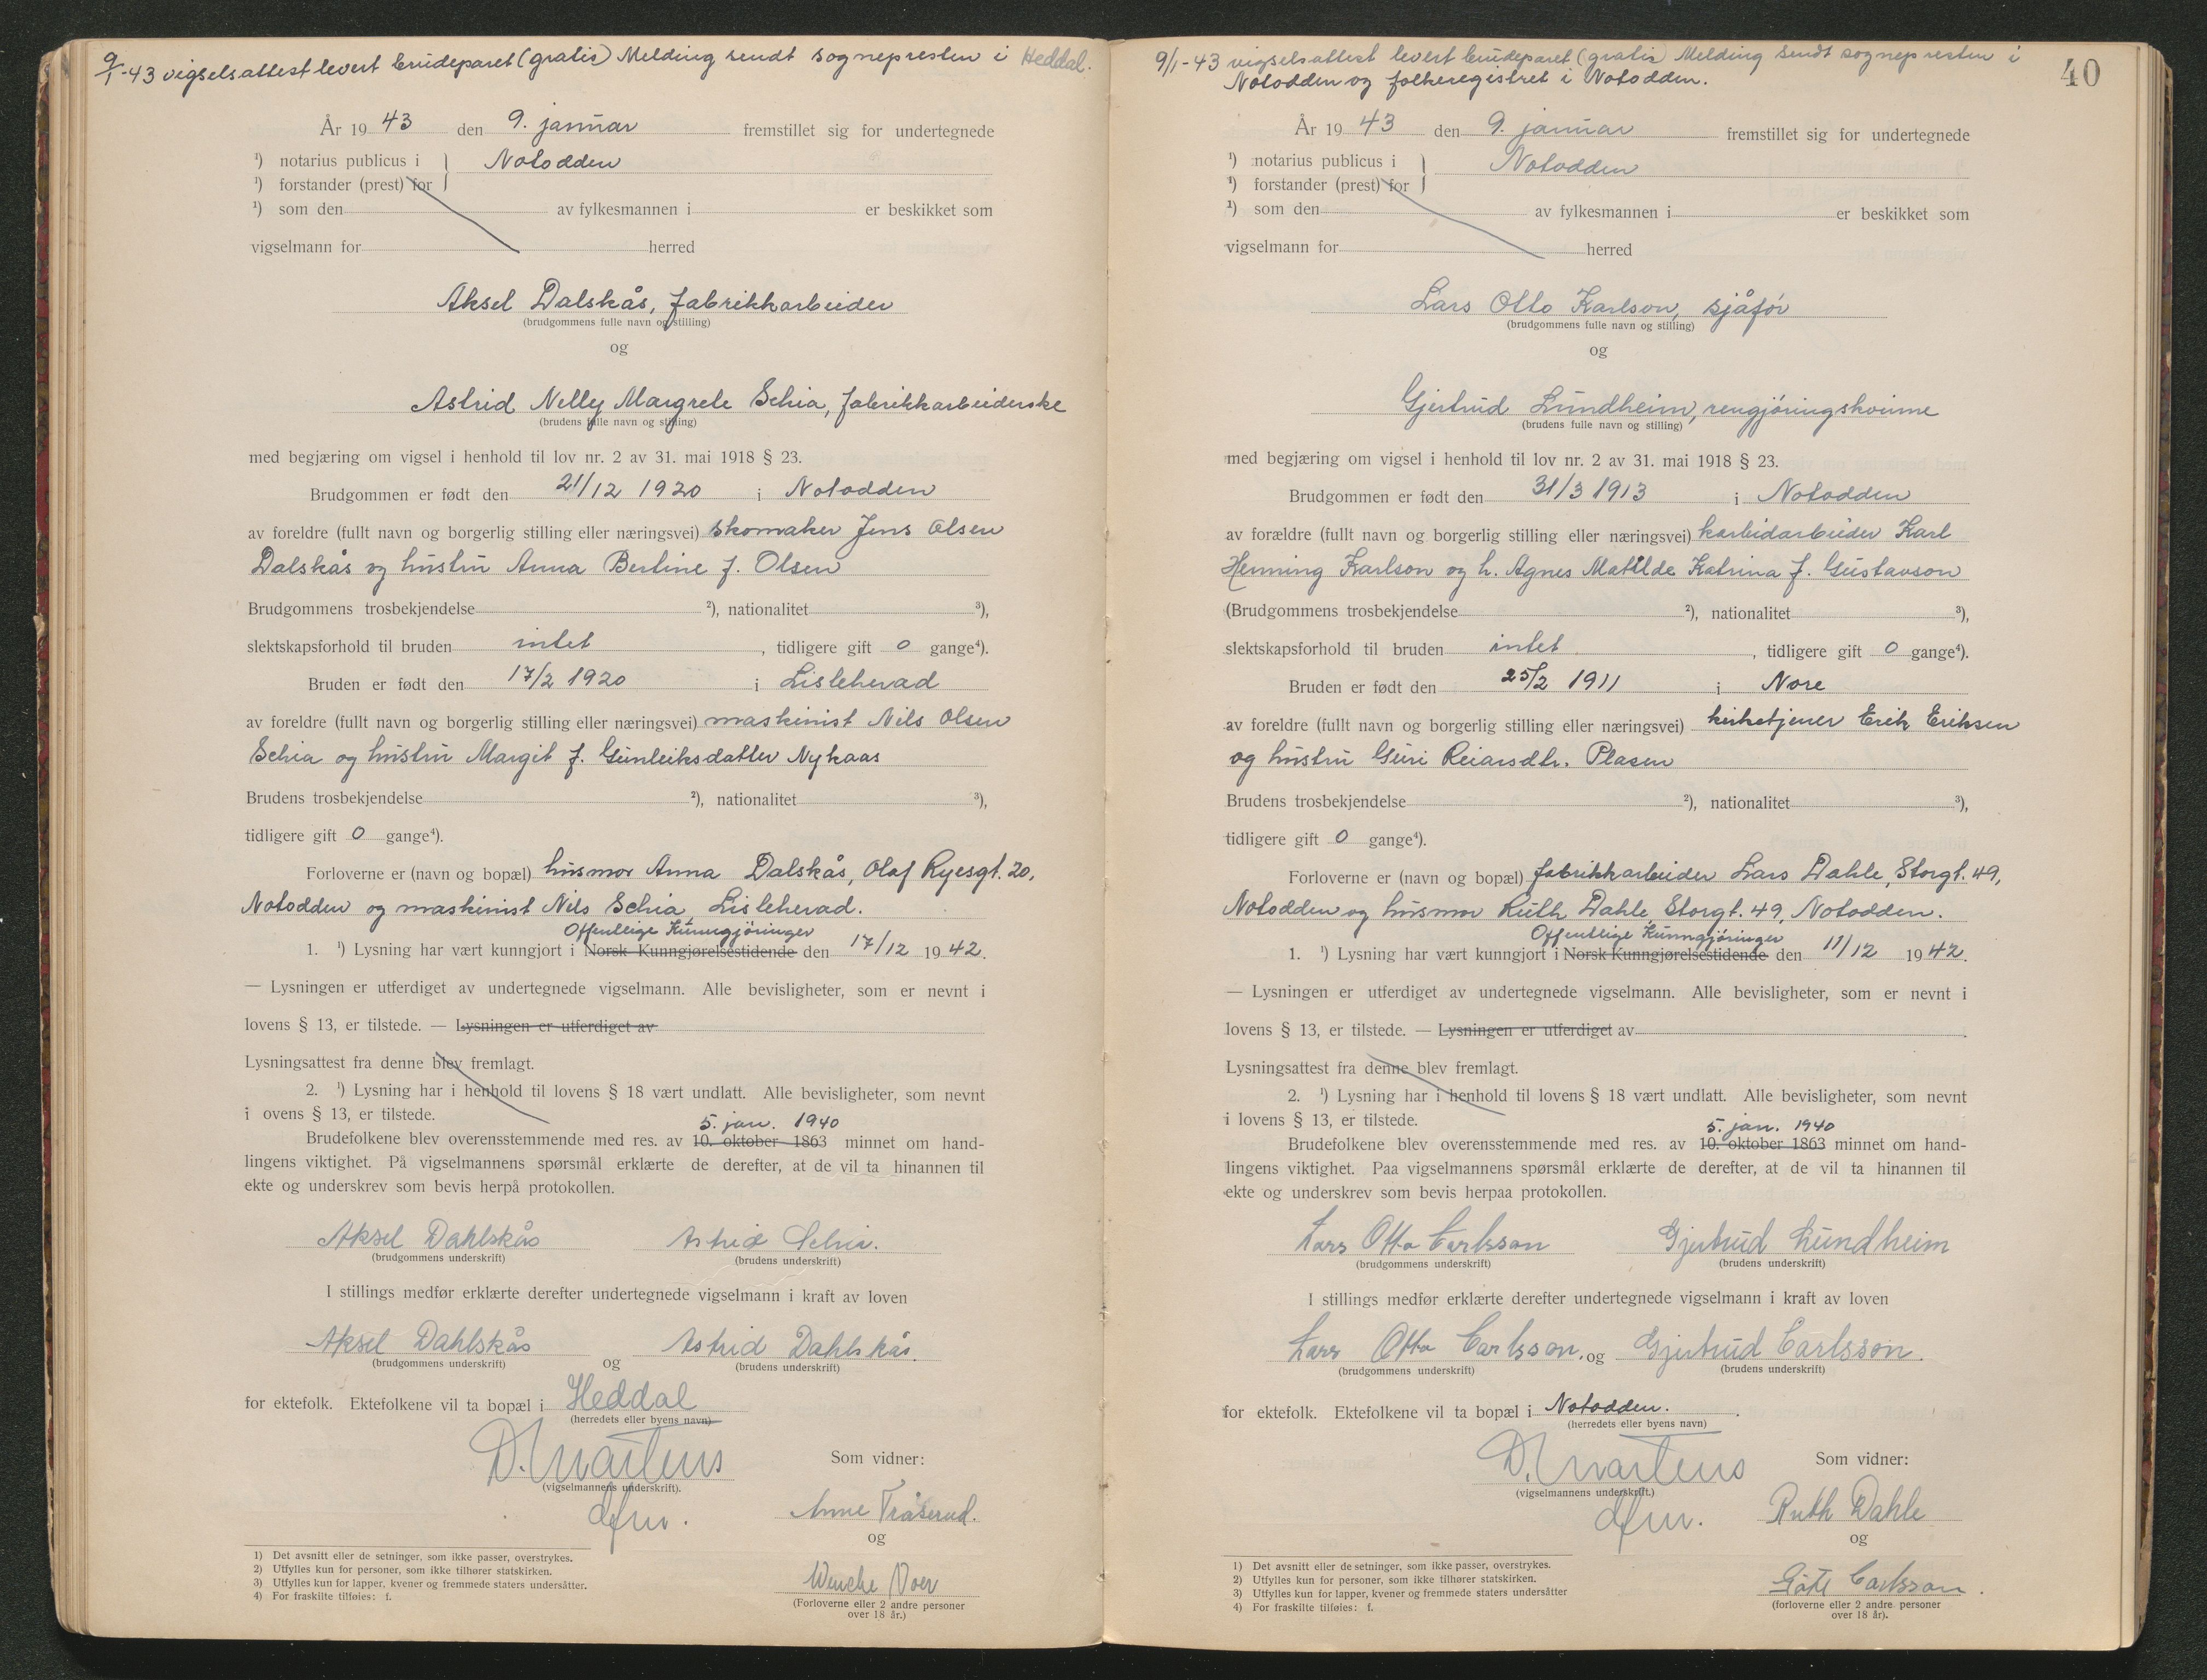 9/1-43 vigselsattest levert brudeparet (gratis) Melding sendt sognepresten i Heddal.
År 1943 den 9. januar fremstillet sig for undertegnede
¹) notarius publicus i } Notodden
¹) forstander (prest) for
¹) som den av fylkesmannen i er beskikket som
vigselmann for herred
Aksel Dalskås, fabrikkarbeider
(brudgommens fulle navn og stilling)
og
Astrid Nelly Margrete Schia, fabrikkarbeiderske
(brudens fulle navn og stilling)
med begjæring om vigsel i henhold til lov nr. 2 av 31. mai 1918 § 23.
Brudgommen er født den 21/12 1920 i Notodden
av foreldre (fullt navn og borgerlig stilling eller næringsvei) skomaker Jens Olsen
Dalskås og hustru Anna Bertine f. Olsen
Brudgommens trosbekjendelse ²), nationalitet ³),
slektskapsforhold til bruden intet, tidligere gift 0 gange⁴).
Bruden er født den 17/2 1920 i Lisleherad
av foreldre (fullt navn og borgerlig stilling eller næringsvei) maskinist Nils Olsen
Schia og hustru Margit f. Gunleiksdatter Nykaas
Brudens trosbekjendelse ²), nationalitet ³),
tidligere gift 0 gange⁴).
Forloverne er (navn og bopæl) husmor Anna Dalskås, Olaf Ryesgt. 20,
Notodden og maskinist Nils Schia, Lisleherad.
Offentlige Kunngjøringer
1. ¹) Lysning har vært kunngjort i Norsk Kunngjørelsestidende den 17/12 1942.
— Lysningen er utferdiget av undertegnede vigselmann. Alle bevisligheter, som er nevnt i
lovens § 13, er tilstede. — Lysningen er utferdiget av
Lysningsattest fra denne blev fremlagt.
2. ¹) Lysning har i henhold til lovens § 18 vært undlatt. Alle bevisligheter, som nevnt
i ovens § 13, er tilstede.
5. jan. 1940
Brudefolkene blev overensstemmende med res. av 10. oktober 1863 minnet om hand-
lingens viktighet. På vigselmannens spørsmål erklærte de derefter, at de vil ta hinannen til
ekte og underskrev som bevis herpå protokollen.
Aksel Dahlskås Astrid Schia.
(brudgommens underskrift) (brudens underskrift)
I stillings medfør erklærte derefter undertegnede vigselmann i kraft av loven
Aksel Dahlskås og Astrid Dahlskås.
(brudgommens underskrift) (brudens underskrift)
for ektefolk. Ektefolkene vil ta bopæl i Heddal
(herredets eller byens navn)
D. Martens
(vigselmannens underskrift).
dfm.
Som vidner:
Anne Tråserud.
og
Wenche Voer
(Forloverne eller 2 andre personer
over 18 år.)
1) Det avsnitt eller de setninger, som ikke passer, overstrykes.
2) Utfylles kun for personer, som ikke tilhører statskirken.
3) Utfylles kun for lapper, kvener og fremmede staters undersåtter.
4) For fraskilte tilføies: f.
40
9/1-43 vigselsattest levert brudeparet (gratis) Melding sendt sognepresten i
Notodden og folkeregistret i Notodden.
År 1943 den 9. januar fremstillet sig for undertegnede
¹) notarius publicus i } Notodden
¹) forstander (prest) for
¹) som den av fylkesmannen i er beskikket som
vigselmann for herred
Lars Otto Karlson, sjåfør
(brudgommens fulle navn og stilling)
og
Gjertrud Lundheim, rengjøringskvinne
(brudens fulle navn og stilling)
med begjæring om vigsel i henhold til lov nr. 2 av 31. mai 1918 § 23.
Brudgommen er født den 31/3 1913 i Notodden
av forældre (fullt navn og borgerlig stilling eller næringsvei) karbidarbeider Karl
Henning Karlson og h. Agnes Matilde Katrina f. Gustavson
(Brudgommens trosbekjendelse ²), nationalitet ³),
slektskapsforhold til bruden intet, tidligere gift 0 gange⁴).
Bruden er født den 25/2 1911 i Nore
av foreldre (fullt navn og borgerlig stilling eller næringsvei) kirketjener Erik Eriksen
og hustru Guri Reiarsdtr. Plasen
Brudens trosbekjendelse ²), nationalitet ³),
tidligere gift 0 gange⁴).
Forloverne er (navn og bopæl) fabrikkarbeider Lars Dahle, Storgt. 49,
Notodden og husmor Ruth Dahle, Storgt. 49, Notodden.
Offentlige Kunngjøringer
1. ¹) Lysning har vært kunngjort i Norsk Kunngjørelsestidende den 11/12 1942.
— Lysningen er utferdiget av undertegnede vigselmann. Alle bevisligheter, som er nevnt i
lovens § 13, er tilstede. — Lysningen er utferdiget av
Lysningsattest fra denne blev fremlagt.
2. ¹) Lysning har i henhold til lovens § 18 vært undlatt. Alle bevisligheter, som nevnt
i lovens § 13, er tilstede.
5. jan. 1940
Brudefolkene blev overensstemmende med res. av 10. oktober 1863 minnet om hand-
lingens viktighet. Paa vigselmannens spørsmål erklærte de derefter, at de vil ta hinannen til
ekte og underskrev som bevis herpaa protokollen.
Lars Otto Carlsson Gjertrud Lundheim
(brudgommens underskrift) (brudens underskrift)
I stillings medfør erklærte derefter undertegnede vigselmann i kraft av loven
Lars Otto Carlsson. og Gjertrud Carlsson.
(brudgommens underskrift) (brudens underskrift)
for ektefolk. Ektefolkene vil ta bopæl i Notodden.
(herredets eller byens navn)
D. Martens
(vigselmannens underskrift.)
dfm.
Som vidner:
Ruth Dahle
og
Gøte Carlsson.
(forloverne eller 2 andre personer
over 18 år).
1) Det avsnitt eller de setninger, som ikke passer, overstrykes.
2) Utfylles kun for personer, som ikke tilhører statskirken.
3) Utfylles kun for lapper, kvener og fremmede staters undersåtter
4) For fraskilte tilføies: f.